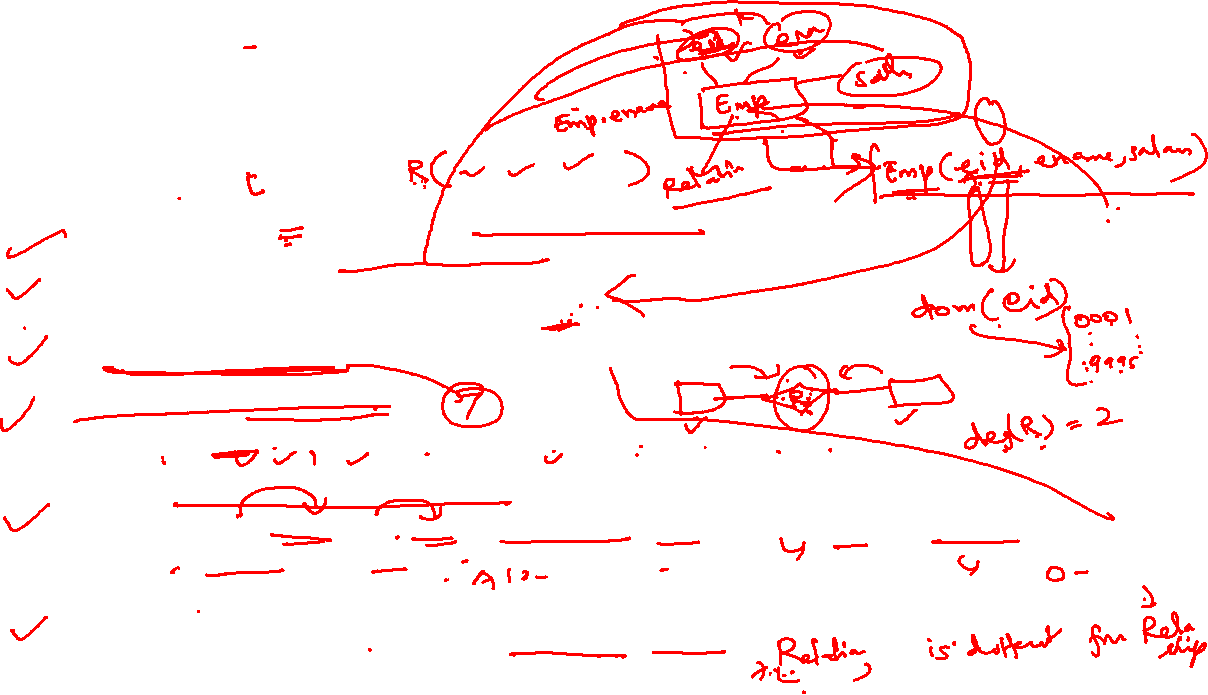 eid
en
Emp
Emp.ename
R(
Relatin
Emp(eid, ename, salary)
dom(eid)
0001
9995
deg(R) = 2
Relation is different frm Rela
ship